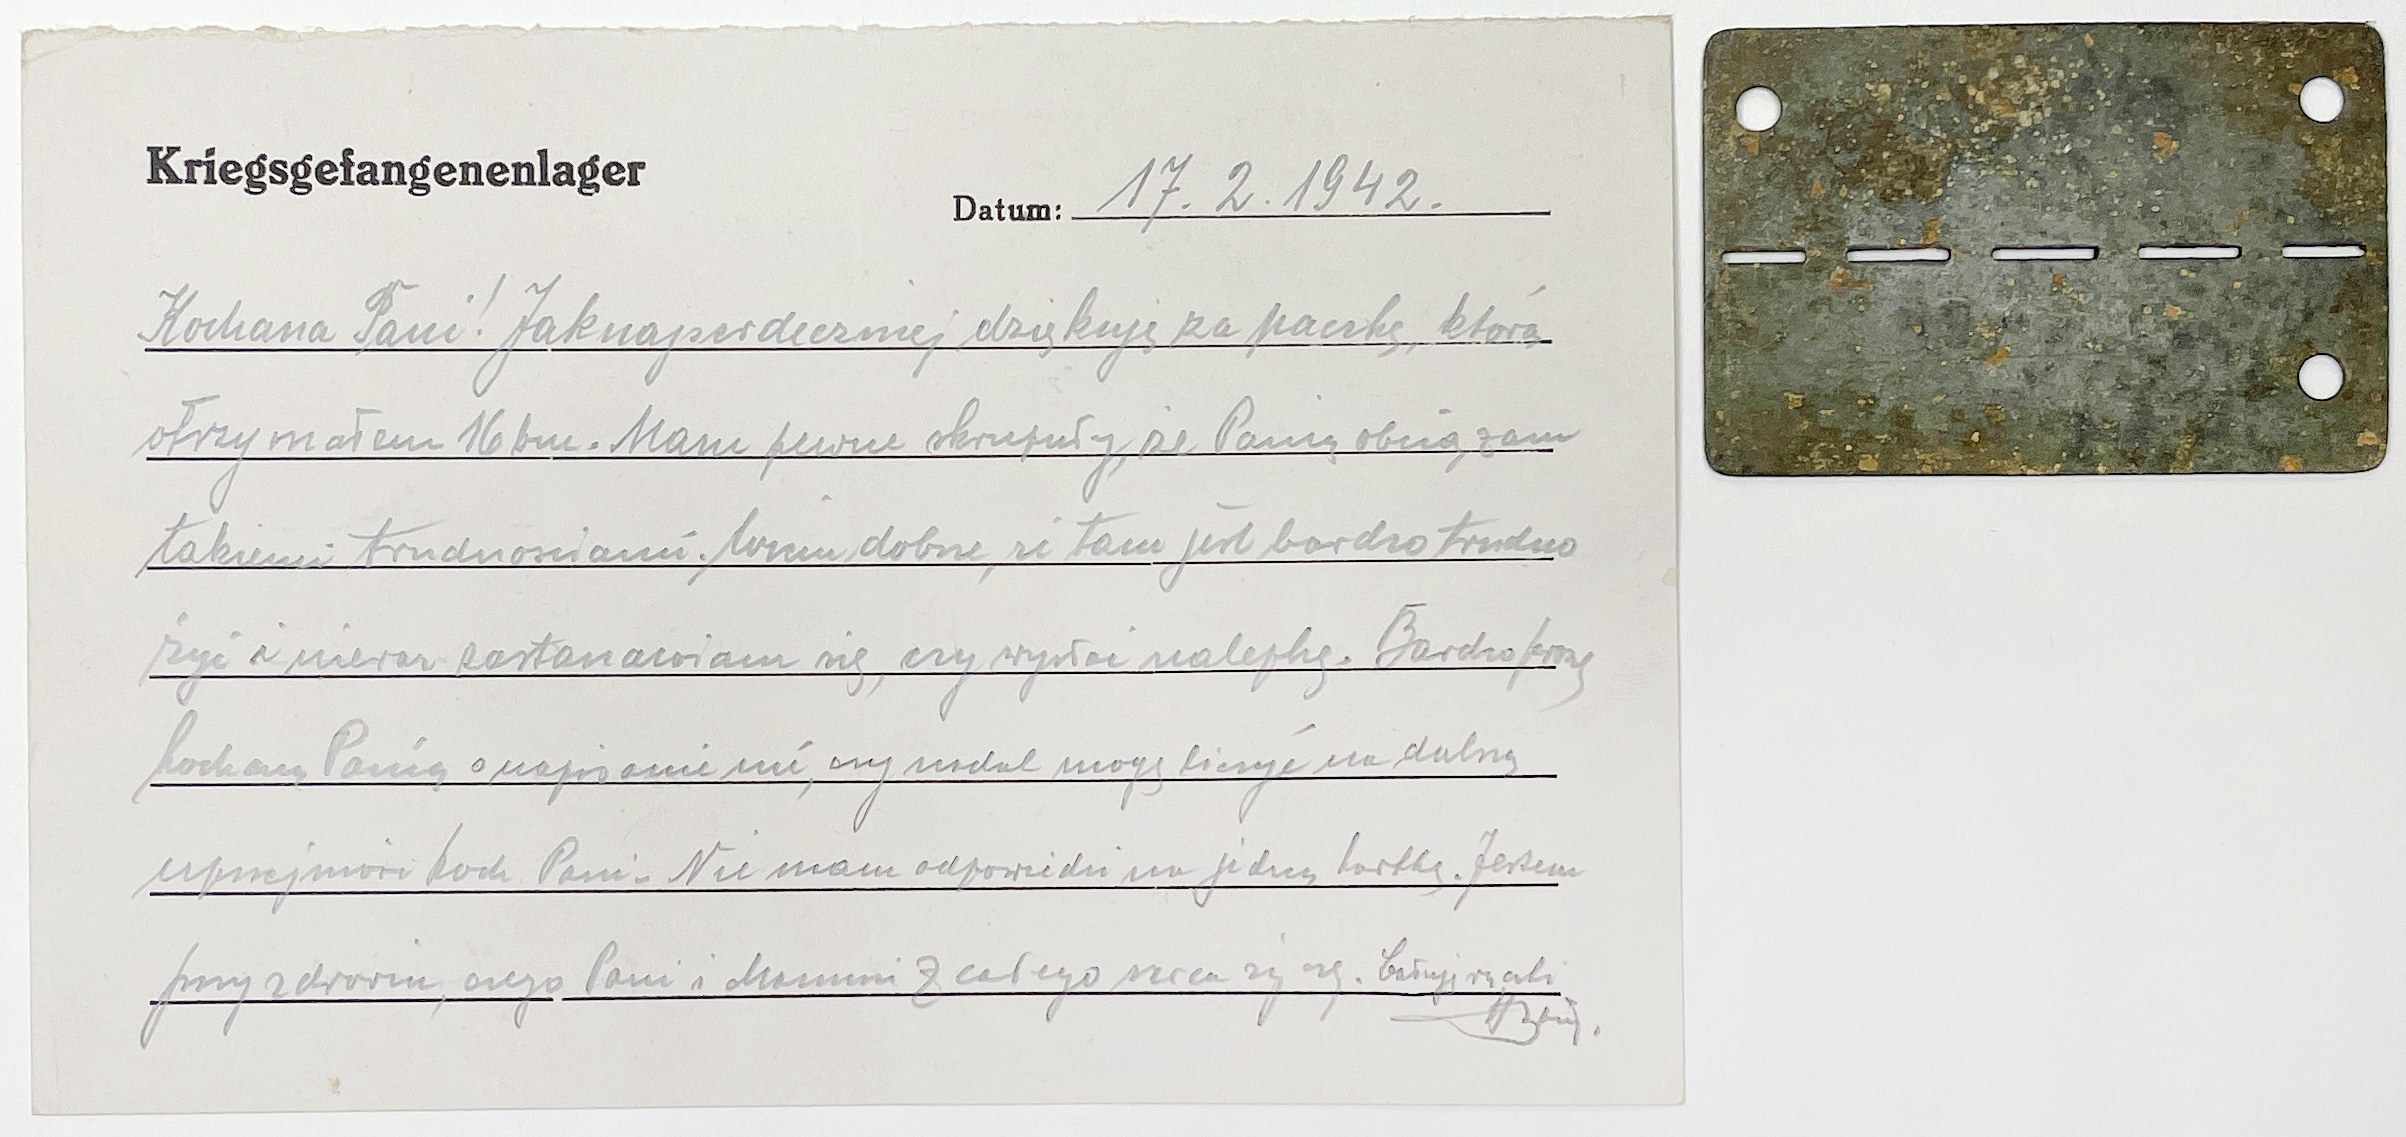 Kriegsgefangenenlager
Datum: 17. 2. 1942.
Kochana Pani! Jaknajserdeczniej dziękuję za paczkę, którą
otrzymałem 16 bm. Mam pewne skrupuły, że Panią obciążam
takiemi trudnościami. Wiem dobrze, że tam jest bardzo trudno
żyć i nieraz zastanawiam się, czy wysłać nalepkę. Bardzo proszę
kochaną Panią o napisanie mi, czy nadal mogę liczyć na dalszą
uprzejmość koch. Pani. Nie mam odpowiedzi na jedną kartkę. Jestem
przy zdrowiu, czego Pani i Mamusi z całego serca życzę. Całuję rączki